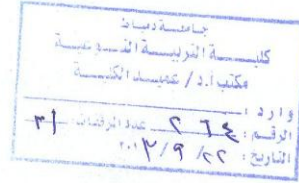 جامعة دمياط
كلية التربية النوعية
مكتب أ.د / عميد الكلية
وارد :
الرقم : ٢٤٢ عدد المرفقات
التاريخ : ٢٢ / ٩ / ٢٠١٣